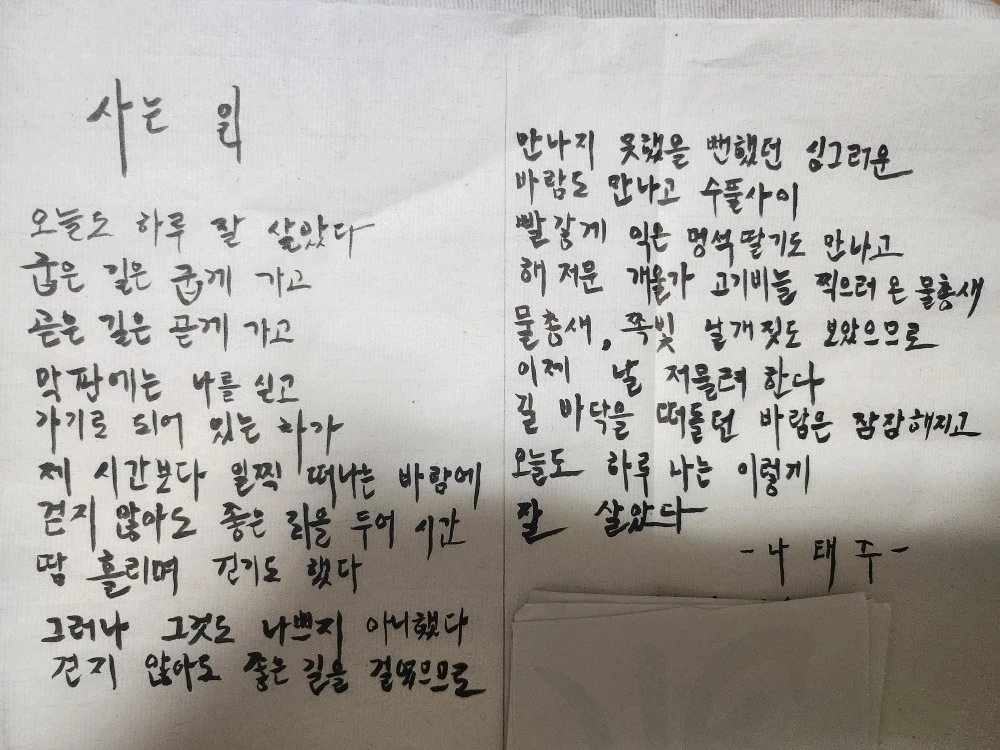 사는 일
오늘도 하루 잘 살았다
굽은 길은 굽게 가고
곧은 길은 곧게 가고
막판에는 나를 싣고
가기로 되어 있는 차가
제 시간보다 일찍 떠나는 바람에
걷지 않아도 좋은 길을 두어 시간
땀 흘리며 걷기도 했다
그러나 그것도 나쁘지 아니했다
걷지 않아도 좋은 길을 걸었으므로
만나지 못했을 뻔했던 싱그러운
바람도 만나고 수풀사이
빨갛게 익은 멍석딸기도 만나고
해 저문 개울가 고기비늘 찍으러 온 물총새
물총새, 쪽빛 날개짓도 보았으므로
이제 날 저물려 한다
길 바닥을 떠돌던 바람은 잠잠해지고
오늘도 하루 나는 이렇게
잘 살았다
-나태주-